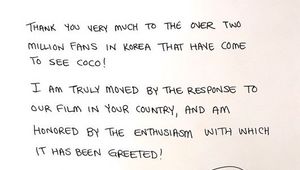 THANK YOU VERY MUCH TO THE OVER TWO
MILLION FANS IN KOREA THAT HAVE COME
TO SEE COCO!
I AM TRULY MOVED BY THE RESPONSE TO
OUR FILM IN YOUR COUNTRY, AND AM
HONORED BY THE ENTHUSIASM WITH WHICH
IT HAS BEEN GREETED!